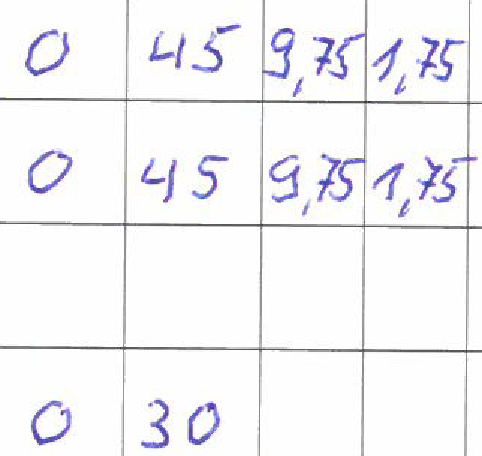 0 45 9,75 1,75
0 45 9,75 1,75
0 30